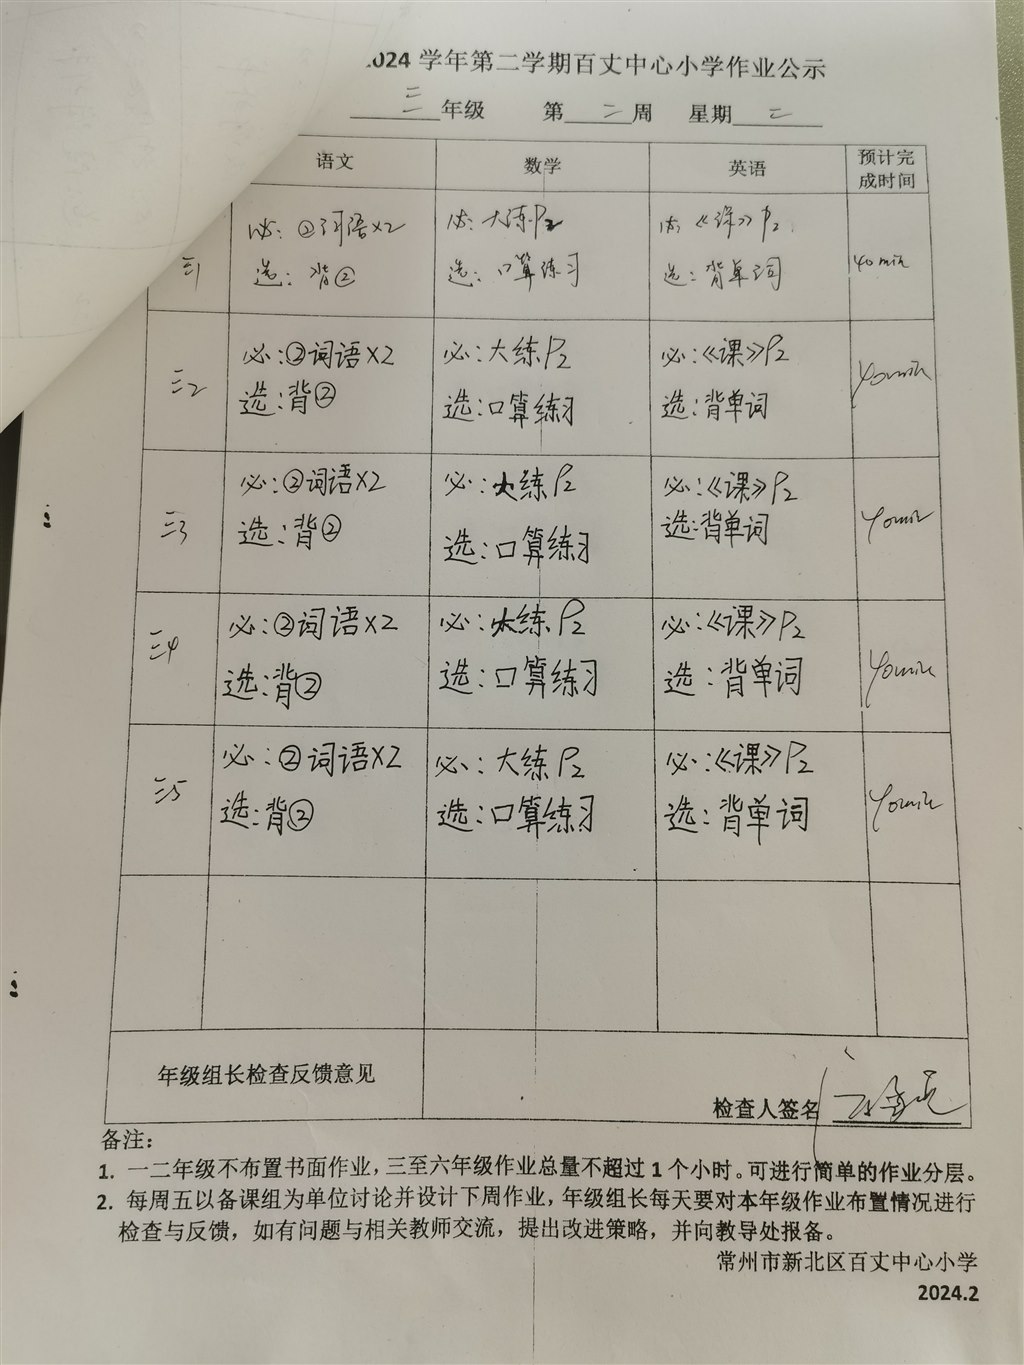 2024 学年第二学期百丈中心小学作业公示
三 年级 第 二 周 星期 二
语文 数学 英语 预计完成时间
三1 必: ②词语×2 必: 大练P2 必: 《课》P2 40min
选: 背② 选: 口算练习 选: 背单词
三2 必:②词语×2 必:大练P2 必:《课》P2 40min
选:背② 选:口算练习 选:背单词
三3 必:②词语×2 必:大练P2 必:《课》P2 40min
选:背② 选:口算练习 选:背单词
三4 必:②词语×2 必:大练P2 必:《课》P2 40min
选:背② 选:口算练习 选:背单词
三5 必:②词语×2 必:大练P2 必:《课》P2 40min
选:背② 选:口算练习 选:背单词
年级组长检查反馈意见
检查人签名
备注:
1. 一二年级不布置书面作业,三至六年级作业总量不超过1个小时。可进行简单的作业分层。
2. 每周五以备课组为单位讨论并设计下周作业,年级组长每天要对本年级作业布置情况进行
检查与反馈,如有问题与相关教师交流,提出改进策略,并向教导处报备。
常州市新北区百丈中心小学
2024.2